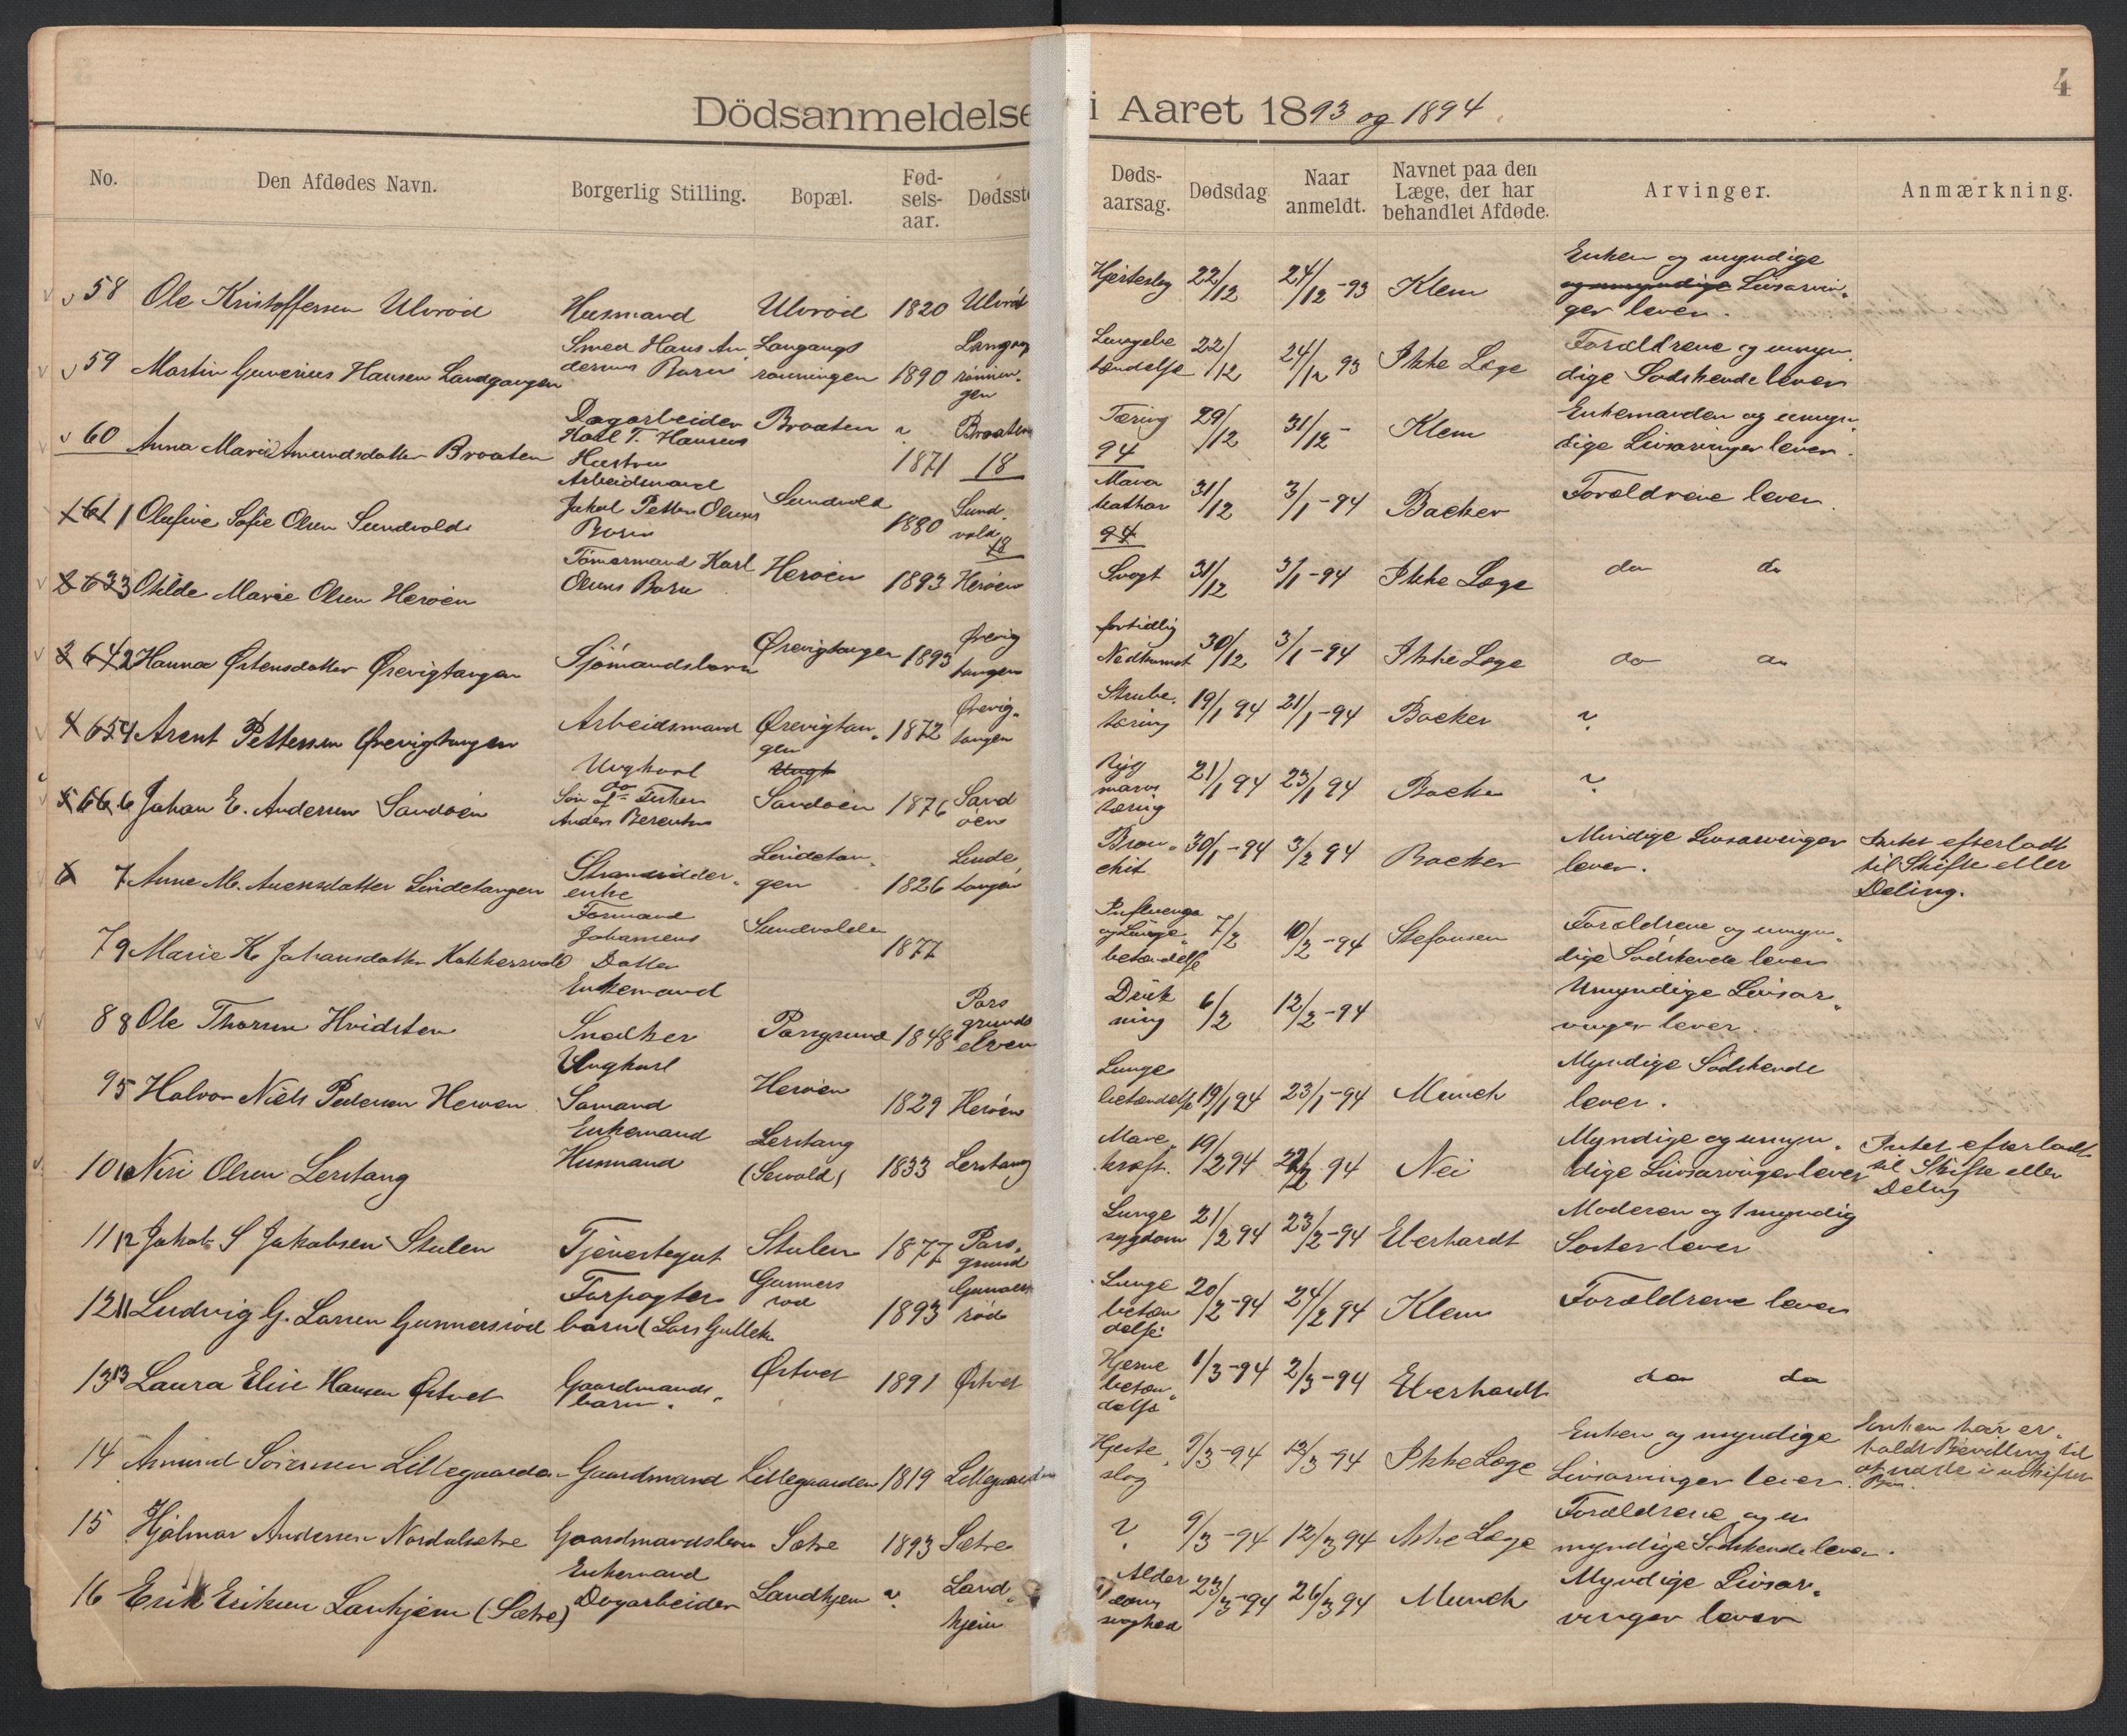 4
Dödsanmeldelse i Aaret 1893 og 1894
No. Den Afdødes Navn. Borgerlig Stilling. Bopæl. Fød-sels-aar. Dødsst Døds-aarsag. Dødsdag Naar anmeldt. Navnet paa den Læge, der har behandlet Afdøde. Arvinger. Anmærkning.
58 Ole Kristoffersen Ulvrød Husmand Ulvrød 1820 Ulvrød Hjerteslag 22/12 24/12-93 Klem Enken og myndige og umyndige Livsarvinger lever.
59 Martin Gunerius Hansen Landgangen Smed Hans Andersens Barn Langangsrønningen 1890 Langangrønningen Lungebetændelse 22/12 24/12 93 Ikke Læge Forældrene og umyndige Sødskende lever
60 Anna Marie Amundsdatter Braaten Dagarbeider Karl T. Hansens Hustru Braaten ? 1871 Braaten Tæring 29/12 31/12- Klem Enkemanden og umyndige Livsarvinger lever.
18 94
61 1 Olufine Sofie Olsen Sundvold Arbeidsmand Jakob Petter Olsens Barn Sundvold 1880 Sundvold Mavekathar 31/12 3/1-94 Backer Forældrene lever.
18 94
2 63 3 Otilde Marie Olsen Herøen Tømermand Karl Olsens Barn Herøen 1893 Herøen Svagt 31/12 3/1-94 Ikke Læge do do
3 64 2 Hanna Østensdatter Ørevigtangen Sjømandsbarn Ørevigtangen 1893 Ørevigtangen fortidlig Nedkomst 30/12 3/1-94 Ikke Læge do do
4 65 4 Arent Pettersen Ørevigtangen Arbeidsmand Ørevigtangen 1872 Ørevigtangen Strubetæring 19/1 94 21/1-94 Backer ?
5 66 6 Johan E. Andersen Sandøen Ungkarl do Søn af Fisker Anders Berentsen Ungk Sandøen 1876 Sandøen Rygmarvstæring 21/1 94 23/1 94 Backer ?
6 7 Anne M. Auensdatter Lindetangen Strandsidderenke Lindetangen 1826 Lindetangen Bronchit 30/1-94 3/2 94 Backer Mindige Livsarvinger lever. Intet efterladt til Skifte eller Deling.
7 9 Marie K. Johansdatter Kokkersvold Formand Johansens Datter Sundvolden 1877 Influenza og Lungebetændelse 7/2 10/2-94 Stefansen Forældrene og umyndige Sødskende lever
8 8 Ole Thorsen Hvidsten Enkemand Snedker Porsgrund 1848 Porsgrundselven Drukning 6/2 12/2-94 Umyndige Livsarvinger lever.
9 5 Halvor Niels Pedersen Herøen Ungkarl Sømand Herøen 1829 Herøen Lungebetændelse 19/1 94 23/1-94 Munch Myndige Sødskende lever.
10 10 Niri Olsen Lerstang Enkemand Husmand Lerstang (Sevald) 1833 Lerstang Mavekræft. 19/2 94 22/2 94 Nei Myndige og umyndige Livsarvinger lever Intet efterladt til Skifte eller Deling
11 12 Jakob S Jakobsen Stulen Tjenestegut Stulen 1877 Porsgrund Lungesygdom 21/2 94 23/2-94 Eberhardt Moderen og 1 myndig Søster lever
12 11 Ludvig G. Larsen Gunnersrød Forpagterbarn (Lars Gulleks Gunnersrød 1893 Gunnersrød Lungebetændelse 20/2-94 24/2 94 Klem Forældrene lever
13 13 Laura Elise Hansen Østvet Gaardmandsbarn. Østvet 1891 Østvet Hjernebetændelse 1/3-94 2/3-94 Eberhardt do do
14 Amund Sørensen Lillegaarden Gaardmand Lillegaarden 1819 Lillegaarden Hjerteslag 9/3-94 12/3-94 Ikke Læge Enken og myndige Livsarvinger lever. Enken har erholdt Bevilling til at sidde i uskiftet Bo.
15 Hjalmar Andersen Nordalsetre Gaardmandsbarn Sætre 1893 Sætre ? 9/3-94 12/3 94 Ikke Læge Forældrene og umyndige Sødskende lever.
16 Erik Eriksen Lanhjem (Sætre) Enkemand Dagarbeider Landhjem ? Landhjem Alderdomssvaghed 23/3-94 26/3 94 Munch Myndige Livsarvinger lever